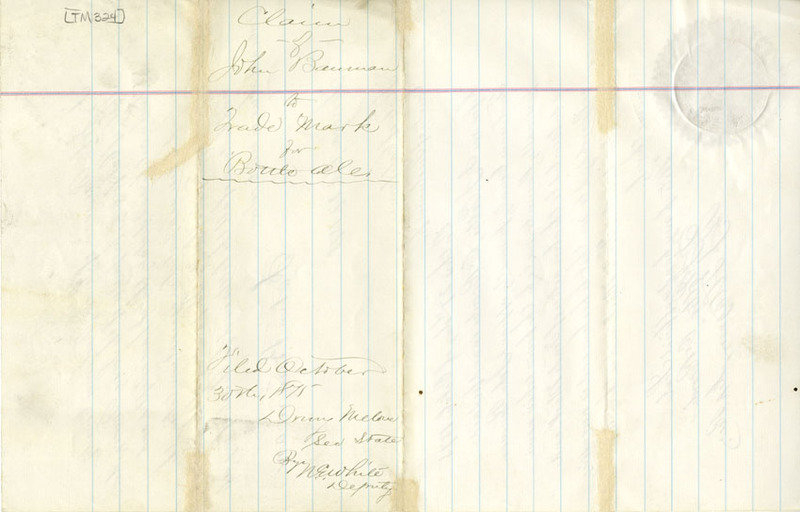 [TM 324]
Claim
of
John Bauman
to
Trade Mark
for
Bottle Ales
Filed October
30th, 1875
Drury Melone
Sec State
By
White
Deputy